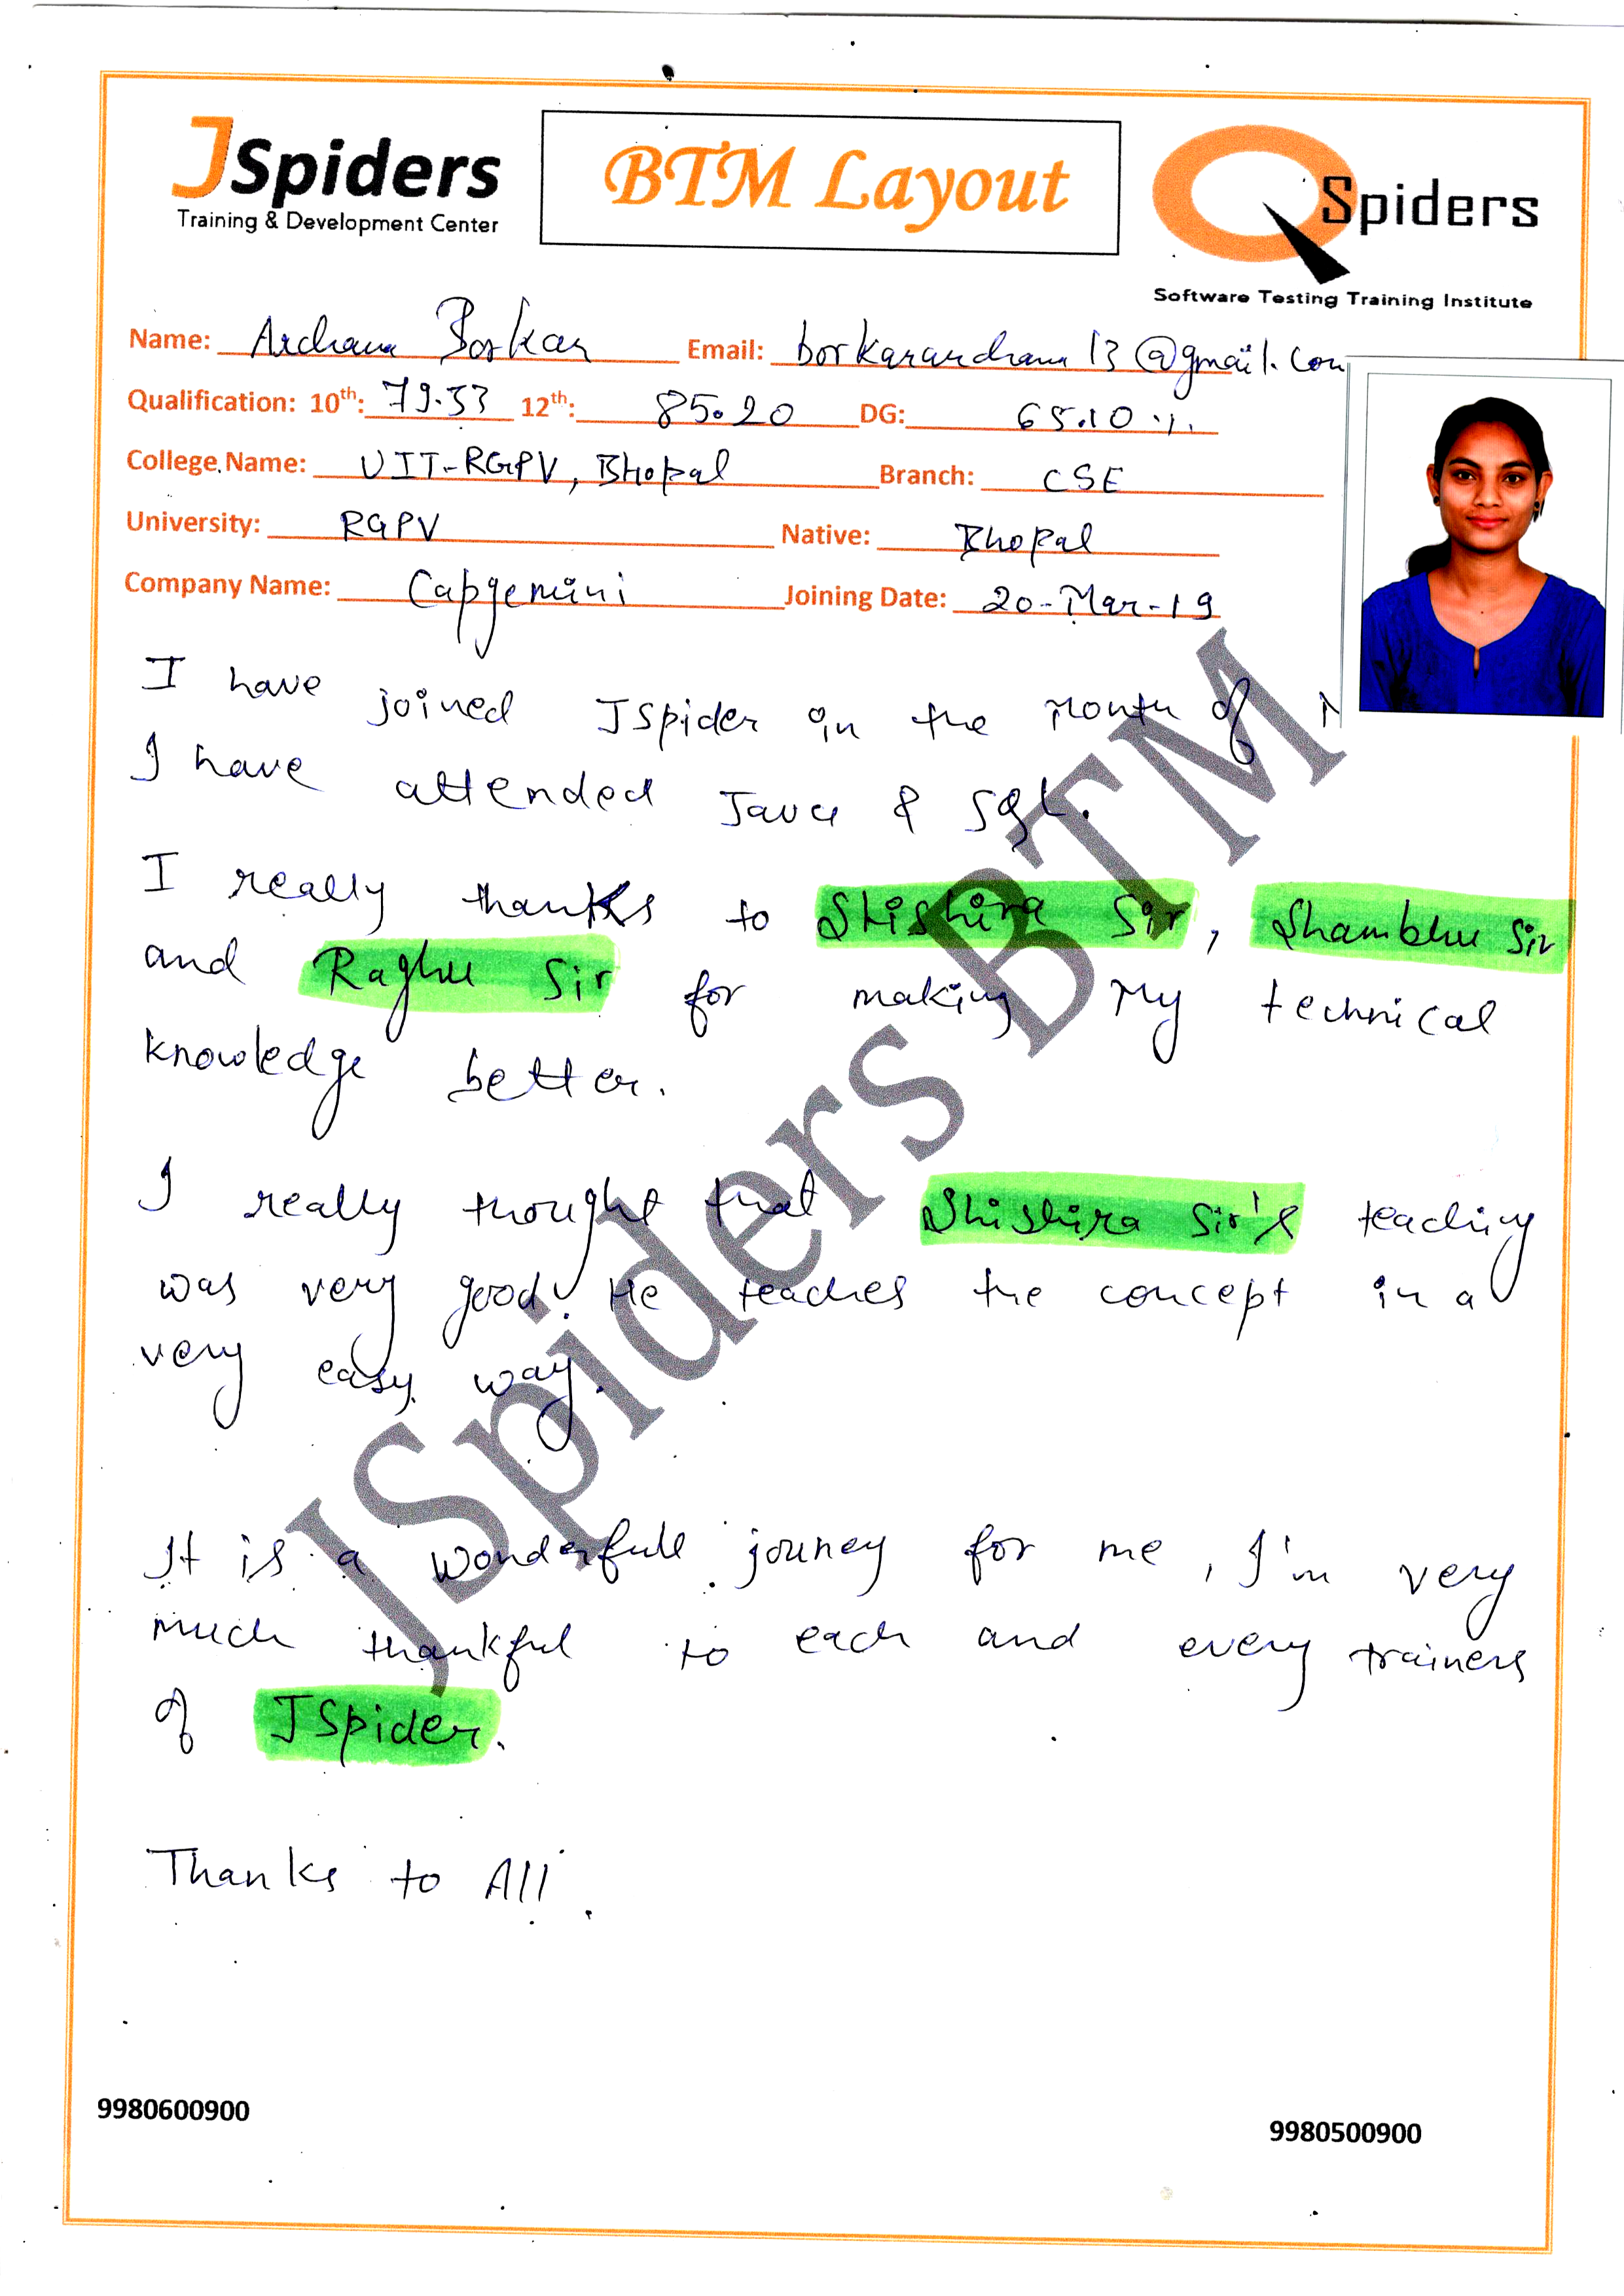 JSpiders
Training & Development Center
BTM Layout
QSpiders
Software Testing Training Institute
Name: Archana Borkar Email: borkararchana13@gmail.com
Qualification: 10th: 79.33 12th: 85.20 DG: 65.10 %
College Name: UIT-RGPV, Bhopal Branch: CSE
University: RGPV Native: Bhopal
Company Name: Capgemini Joining Date: 20-Mar-19
I have joined JSpider in the month of
I have attended Java & SQL.
I really thanks to Shishira Sir, Shambhu Sir
and Raghu Sir for making my technical
knowledge better.
I really thought that Shishira Sir's teaching
was very good. He teaches the concept in a
very easy way.
It is a wonderfull jouney for me, I'm very
much thankful to each and every trainers
of JSpider.
Thanks to All.
JSpiders BTM
9980600900
9980500900